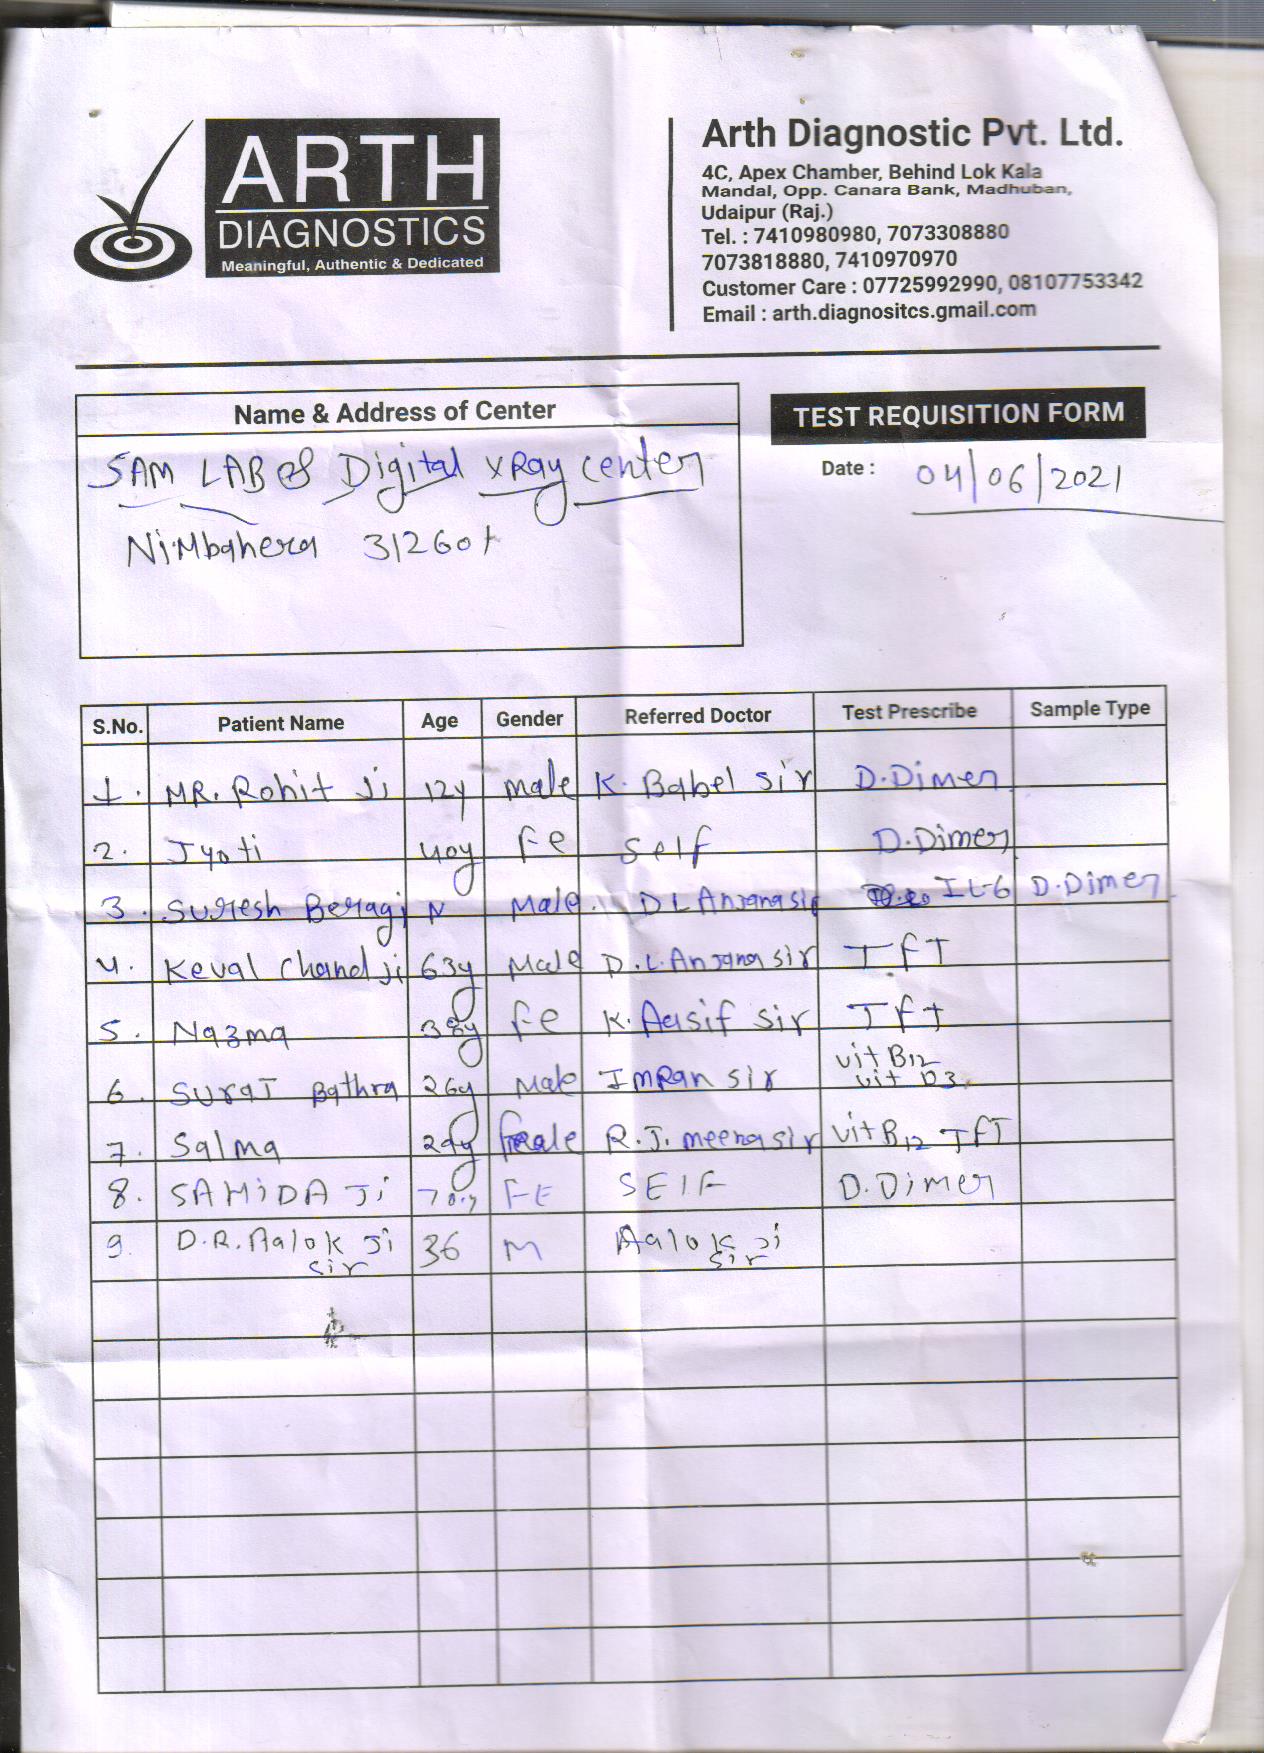 ARTH
DIAGNOSTICS
Meaningful, Authentic & Dedicated
Arth Diagnostic Pvt. Ltd.
4C, Apex Chamber, Behind Lok Kala
Mandal, Opp. Canara Bank, Madhuban,
Udaipur (Raj.)
Tel. : 7410980980, 7073308880
7073818880, 7410970970
Customer Care : 07725992990, 08107753342
Email : arth.diagnositcs.gmail.com
Name & Address of Center
SAM LAB & Digital XRay center
Nimbahera 312601
TEST REQUISITION FORM
Date : 04/06/2021
S.No. Patient Name Age Gender Referred Doctor Test Prescribe Sample Type
1. MR. Rohit Ji 12y male K. Babel sir D.Dimer
2. Jyoti 40y Fe Self D.Dimer
3. Suresh Beragi N Male. D L Anjana sir IL-6 D.Dimer
4. Keval Chand ji 63y Male D.L. Anjana sir TFT
5. Nazma 38y Fe K. Aasif sir TFT
6. Suraj Bathra 26y Male Imran sir vit B12
vit D3
7. Salma 29y R.J. meena sir vit B12 TFT
8. SAHIDA Ji 70y FE SElF D.Dimer
9. D.R. Aalok Ji 36 M Aalok Ji
sir sir